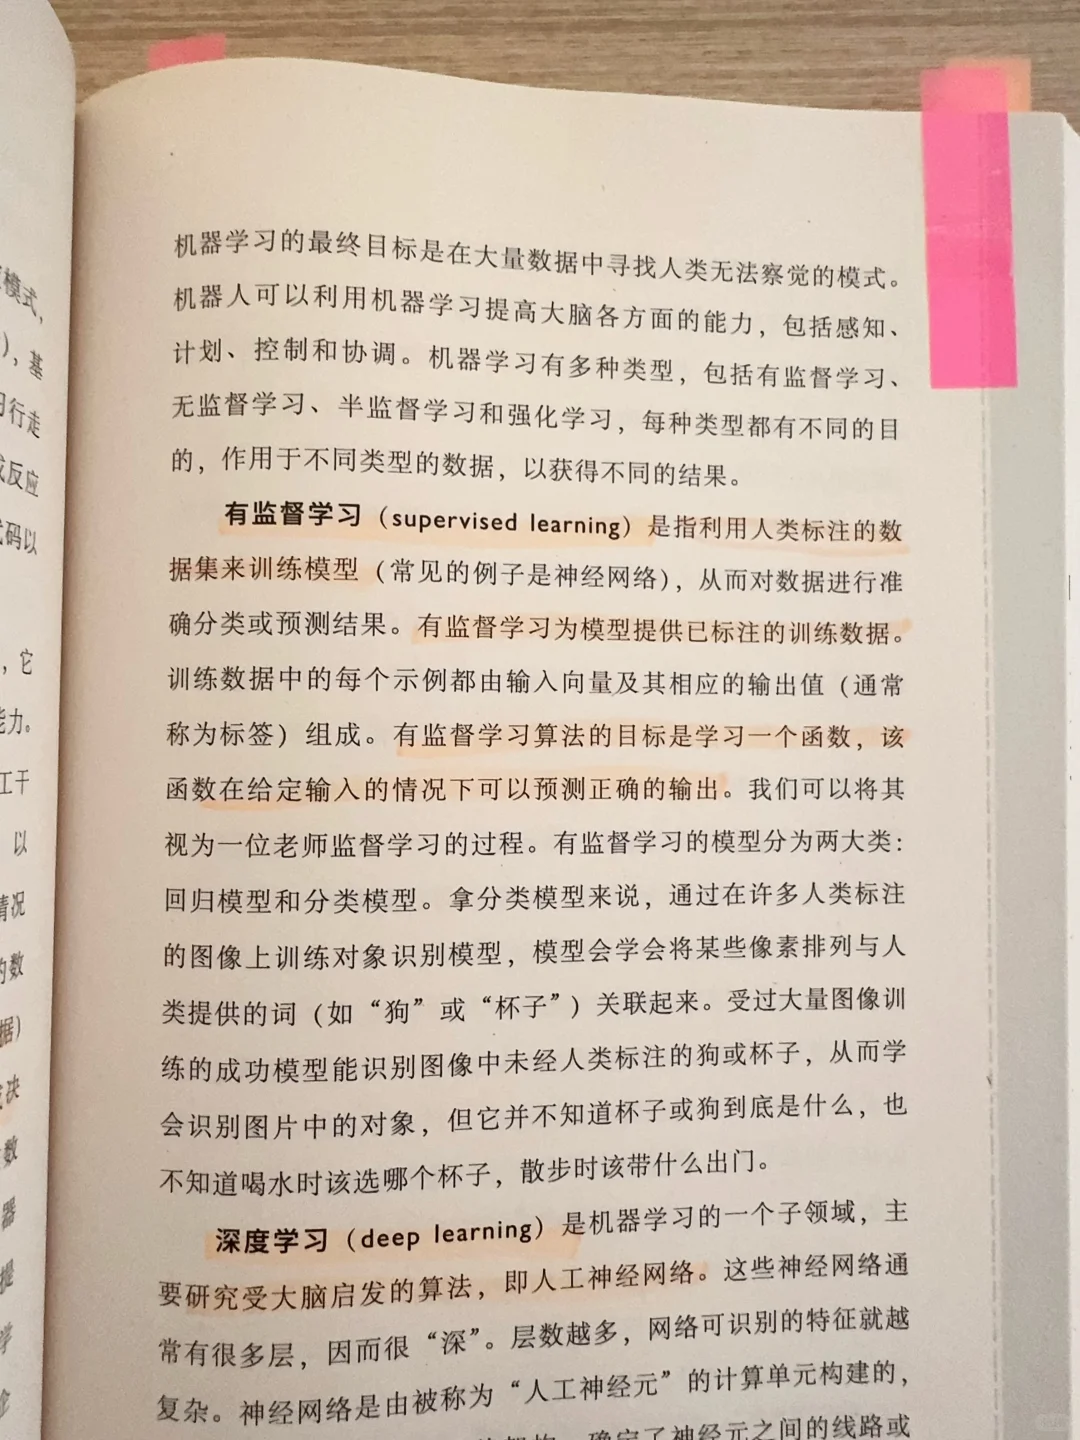 机器学习的最终目标是在大量数据中寻找人类无法察觉的模式。
机器人可以利用机器学习提高大脑各方面的能力，包括感知、
计划、控制和协调。机器学习有多种类型，包括有监督学习、
无监督学习、半监督学习和强化学习，每种类型都有不同的目
的，作用于不同类型的数据，以获得不同的结果。
有监督学习（supervised learning）是指利用人类标注的数
据集来训练模型（常见的例子是神经网络），从而对数据进行准
确分类或预测结果。有监督学习为模型提供已标注的训练数据。
训练数据中的每个示例都由输入向量及其相应的输出值（通常
称为标签）组成。有监督学习算法的目标是学习一个函数，该
函数在给定输入的情况下可以预测正确的输出。我们可以将其
视为一位老师监督学习的过程。有监督学习的模型分为两大类：
回归模型和分类模型。拿分类模型来说，通过在许多人类标注
的图像上训练对象识别模型，模型会学会将某些像素排列与人
类提供的词（如“狗”或“杯子”）关联起来。受过大量图像训
练的成功模型能识别图像中未经人类标注的狗或杯子，从而学
会识别图片中的对象，但它并不知道杯子或狗到底是什么，也
不知道喝水时该选哪个杯子，散步时该带什么出门。
深度学习（deep learning）是机器学习的一个子领域，主
要研究受大脑启发的算法，即人工神经网络。这些神经网络通
常有很多层，因而很“深”。层数越多，网络可识别的特征就越
复杂。神经网络是由被称为“人工神经元”的计算单元构建的，
确定了神经元之间的线路或
模式，
），基
行走
反应
码以
，它
能力。
工干
以
情况
的数
据）
决
数
器
提